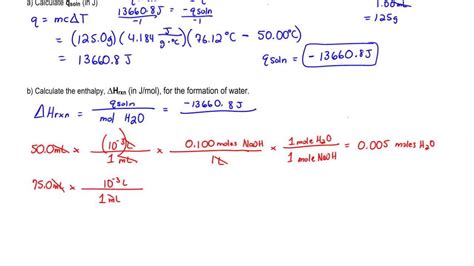 a) Calculate qsoln (in J)
13660.8J = -qsoln
-1 -1
q = mcΔT
= 125g
= (125.0g)(4.184 J/g·°C)(76.12°C - 50.00°C)
= 13660.8J
qsoln = -13660.8J
b) Calculate the enthalpy, ΔHrxn (in J/mol), for the formation of water.
ΔHrxn = qsoln / mol H2O = -13660.8J
50.0mL × (10⁻³L) / 1mL × 0.100 moles NaOH / 1L × 1 mole H2O / 1 mole NaOH = 0.005 moles H2O
75.0mL × 10⁻³L / 1mL